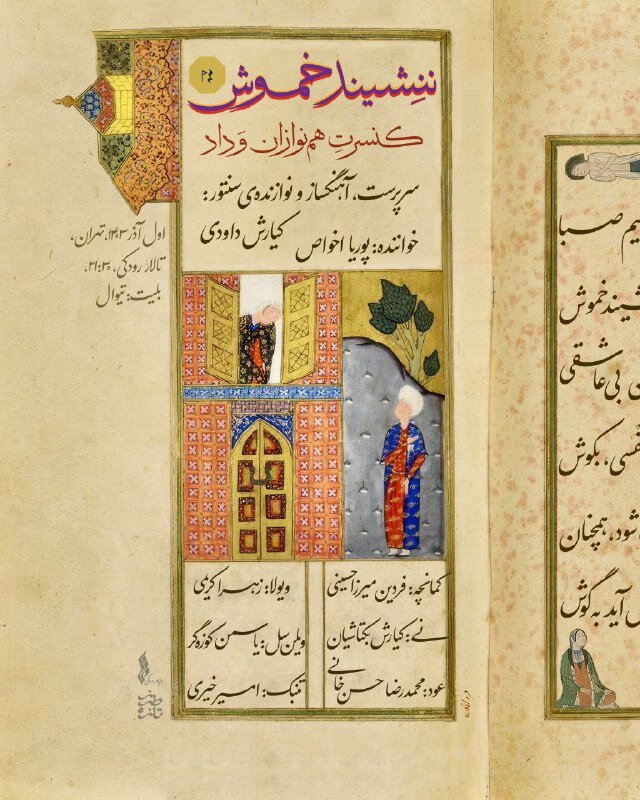 ننشیند خموش
کنسرتِ هم‌نوازان وَداد
سرپرست، آهنگساز و نوازنده‌ی سنتور:
کیارش داودی
خواننده: پوریا اخواص
اول آذر ۱۴۰۳، تهران،
تالار رودکی، ۲۱:۳۰،
بلیت: تیوال
کمانچه: فردین میرزاحسینی
نے: کیارش بکتاشیان
عود: محمدرضا حسن خانے
ویولا: زهرا کرمی
ویلن‌سل: یاسمن کوزه‌گر
تنبک: امیر خیری
صبا
خموش
بی عاشقی
بکوش
شود، همچنان
آید به گوش